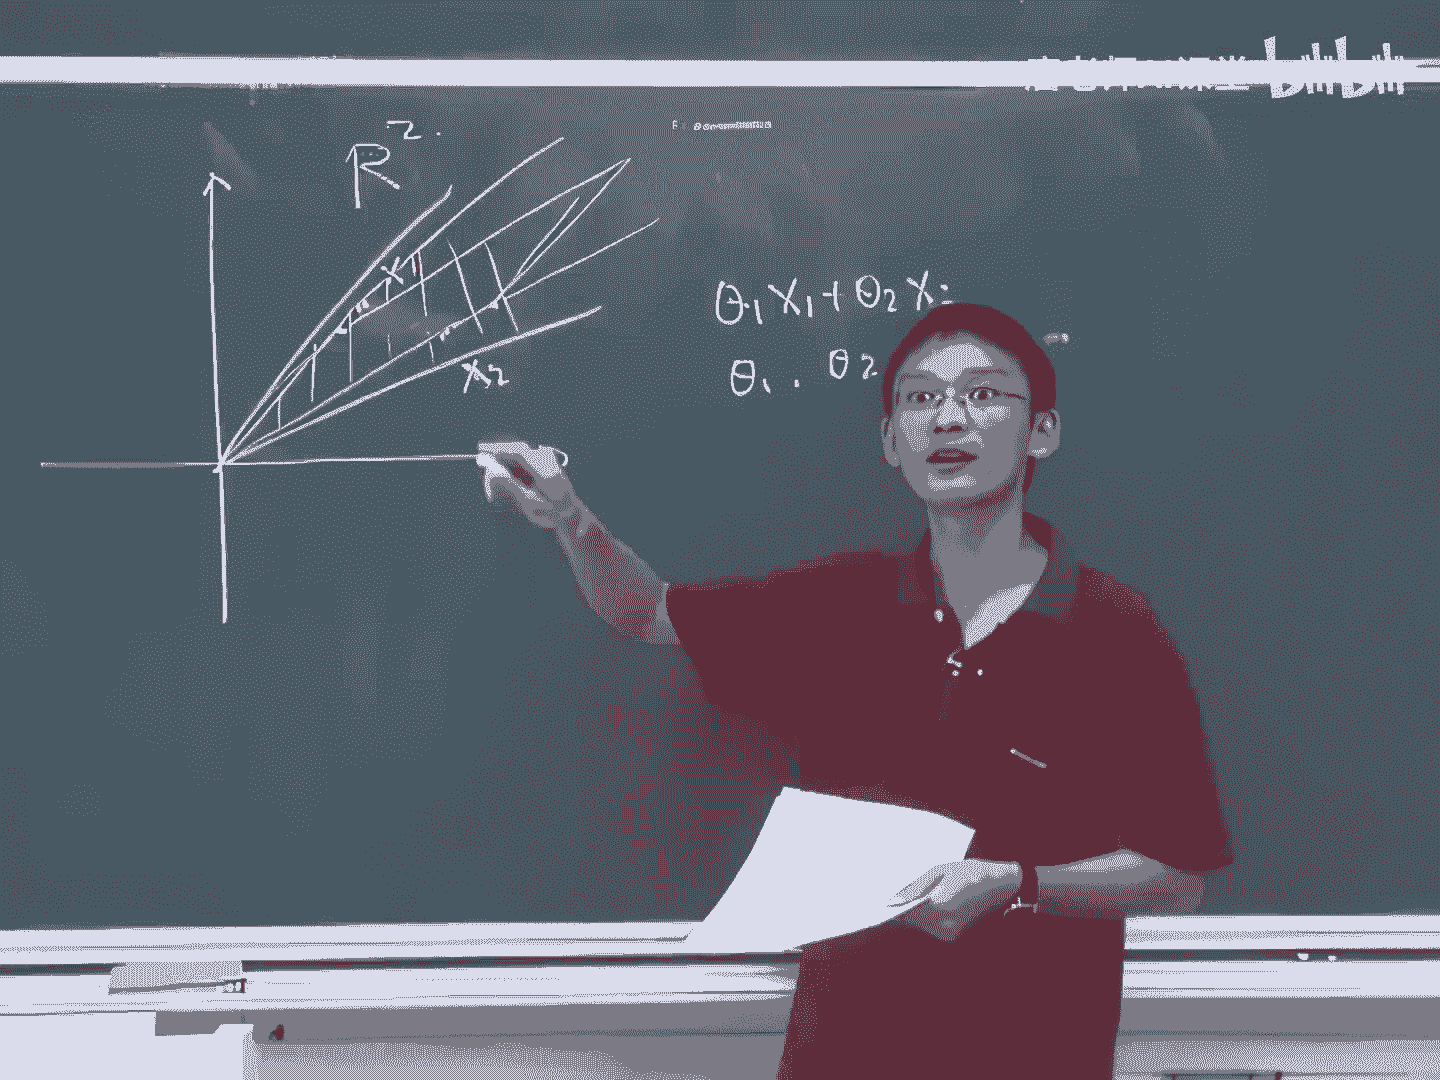 bilibili
R².
X
X₂
θ₁X₁+θ₂X₂
θ₁. θ₂